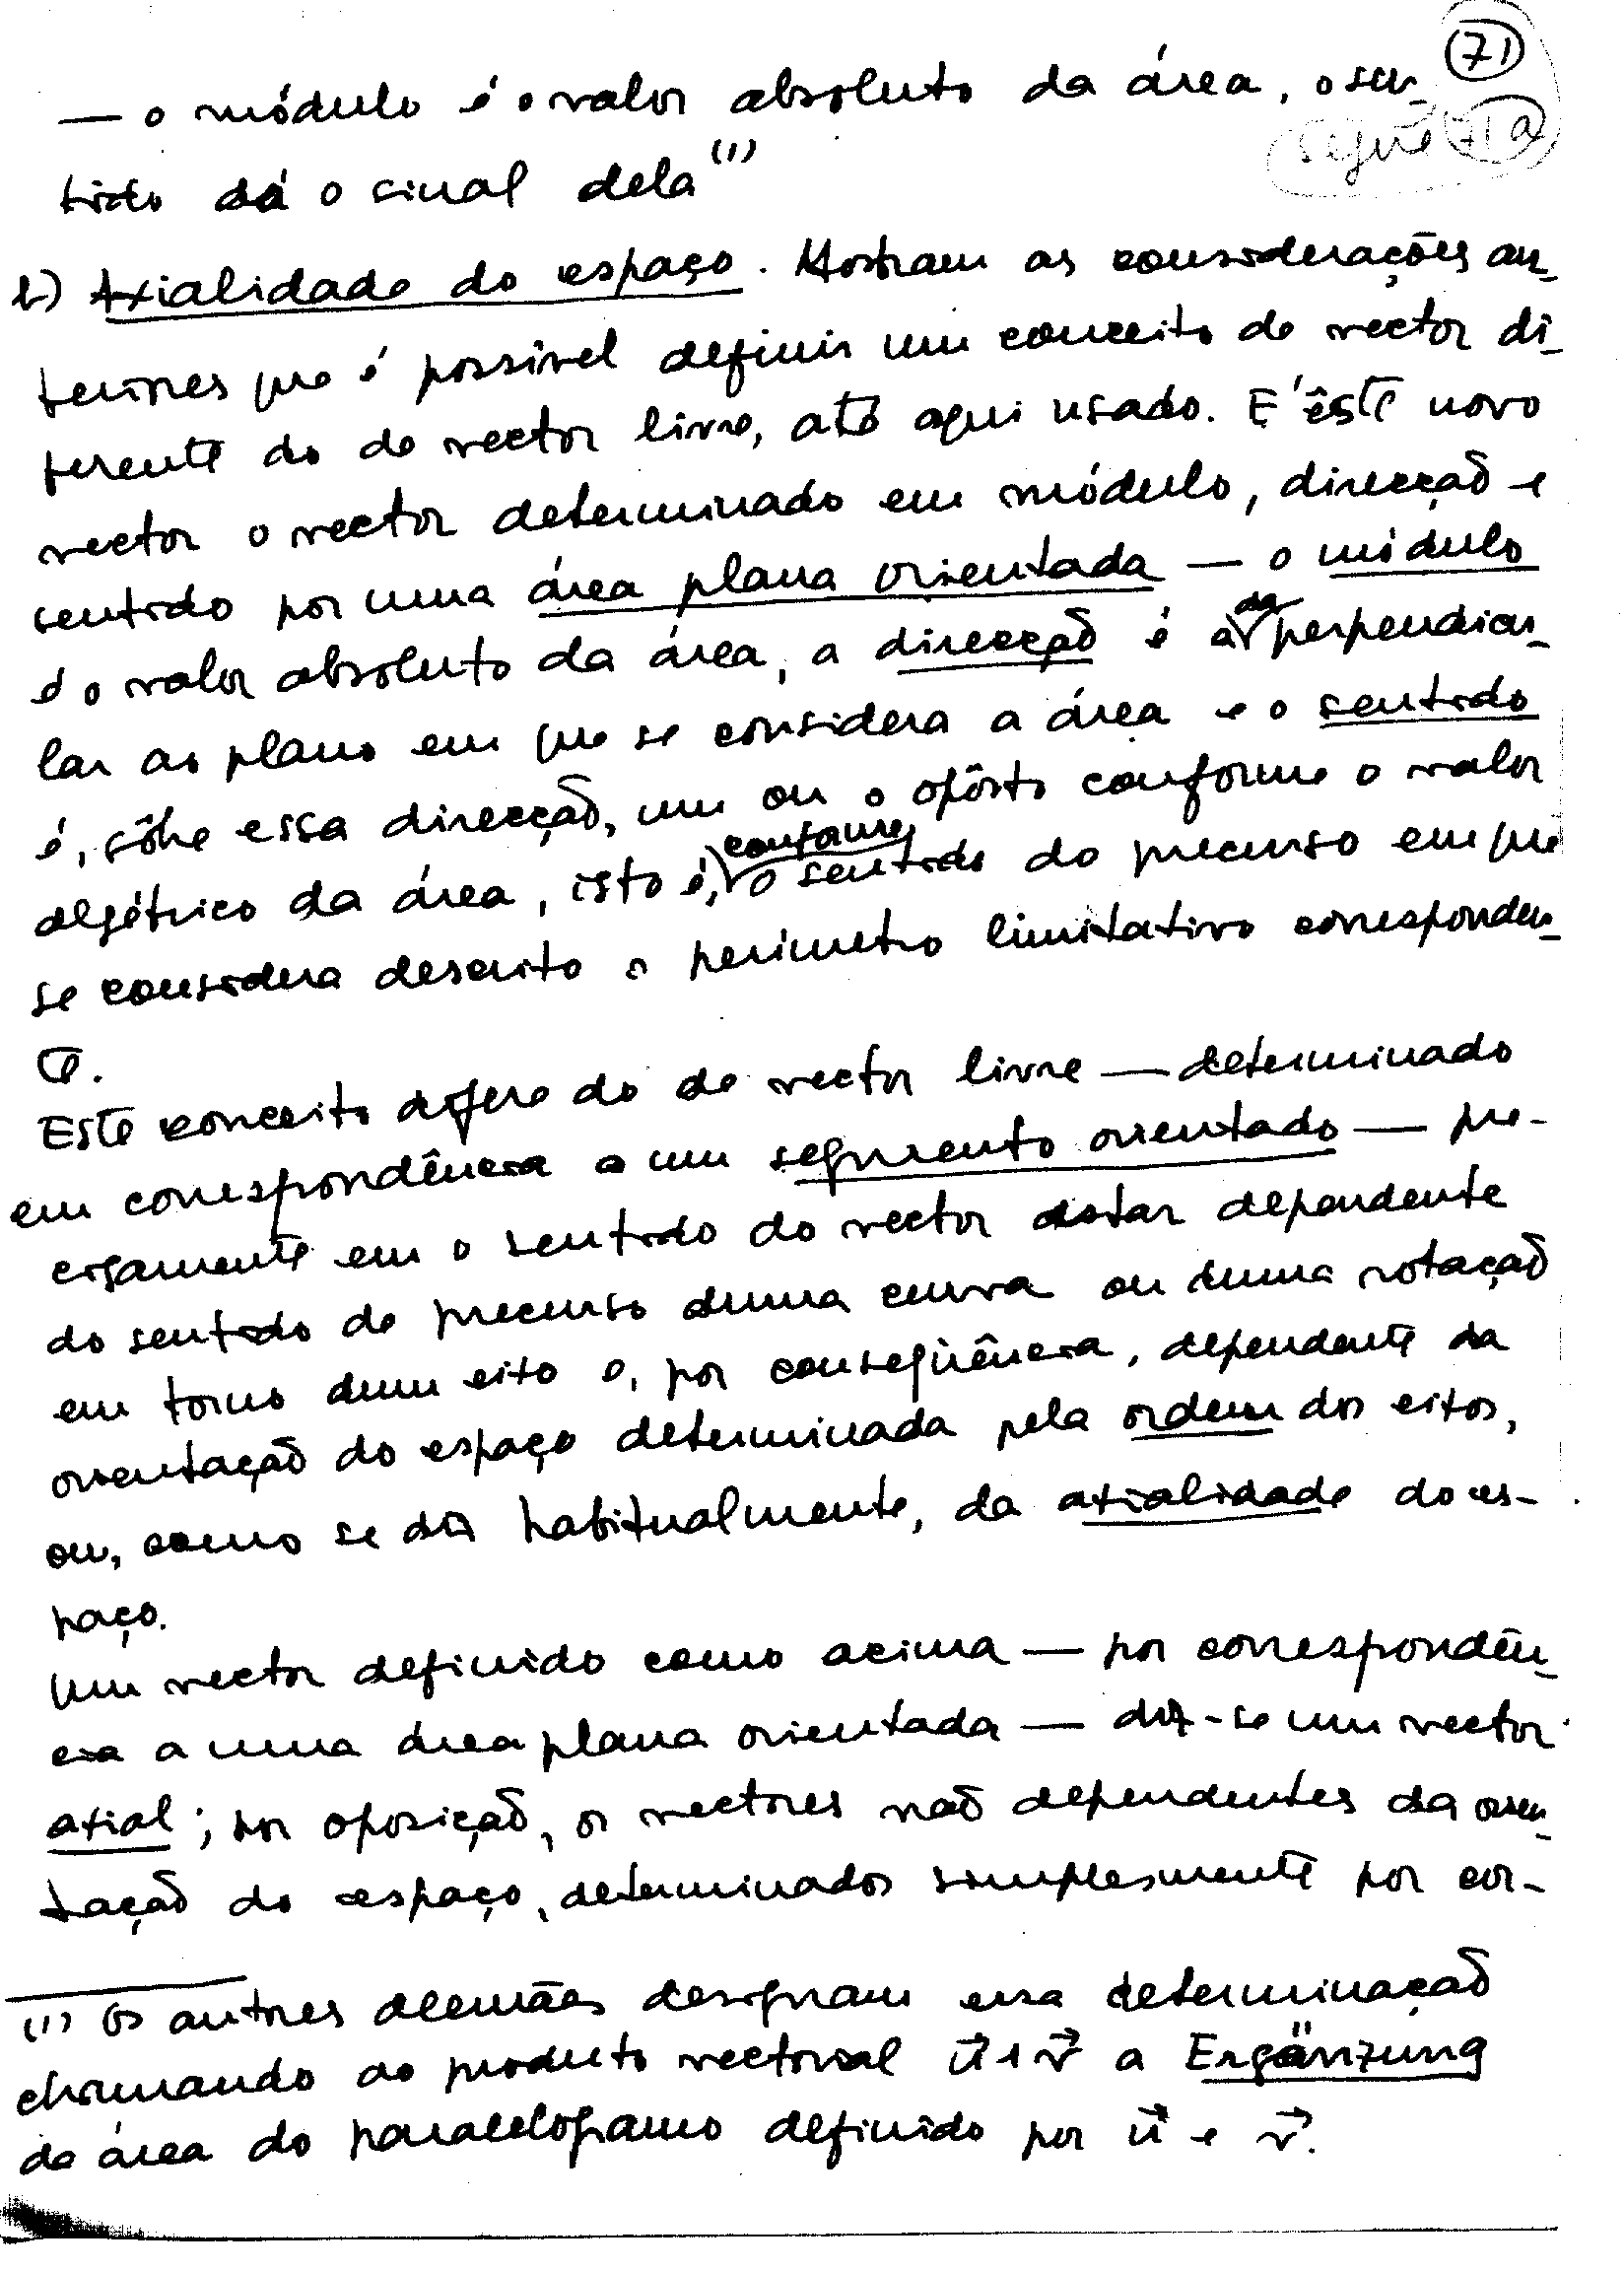 (71)
— o módulo é o valor absoluto da área, o sen-
segue 71a
tido dá o sinal dela (1)
b) Axialidade do espaço. Mostram as considerações an-
teriores que é possível definir um conceito de vector di-
ferente do de vector livre, até aqui usado. E' êste novo
vector o vector determinado em módulo, direcção e
sentido por uma área plana orientada — o módulo
é o valor absoluto da área, a direcção é a da perpendicu-
lar ao plano em que se considera a área e o sentido
é, sôbre essa direcção, um ou o opôsto conforme o valor
algébrico da área, isto é, conforme o sentido do precurso em que
se considera descrito o perímetro limitativo corresponden-
te.
Este conceito difere do de vector livre — determinado
em correspondência a um segmento orientado — pre-
cisamente em o sentido do vector estar dependente
do sentido de precurso duma curva ou duma rotação
em torno dum eixo e, por conseqüência, dependente da
orientação do espaço determinada pela ordem dos eixos,
ou, como se diz habitualmente, da axialidade do es-
paço.
Um vector definido como acima — por correspondên-
cia a uma área plana orientada — diz-se um vector
axial; por oposição, os vectores não dependentes da orien-
tação do espaço, determinados simplesmente por cor-
(1) Os autores alemães designam essa determinação
chamando ao produto vectorial u⃗ ∧ v⃗ a Ergänzung
da área do paralelogramo definido por u⃗ e v⃗.